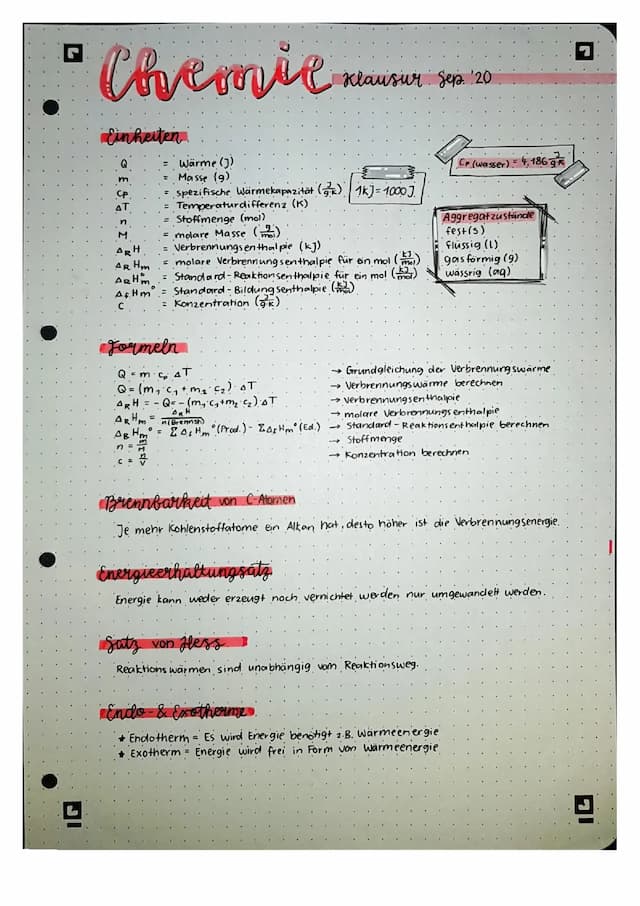 Chemie Klausur Sep. '20
Einheiten
Q = Wärme (J)
m = Masse (g)
cp = spezifische Wärmekapazität (J/g·K)
ΔT = Temperaturdifferenz (K)
n = Stoffmenge (mol)
M = molare Masse (g/mol)
ΔRH = Verbrennungsenthalpie (kJ)
ΔRHm = molare Verbrennungsenthalpie für ein mol (kJ/mol)
ΔRHm° = Standard-Reaktionsenthalpie für ein mol (kJ/mol)
ΔfHm° = Standard-Bildungsenthalpie (kJ/mol)
c = Konzentration (J/g·K)
1kJ = 1000J
Cp (Wasser) = 4,186 J/g·K
Aggregatzustände
fest (s)
flüssig (l)
gasförmig (g)
wässrig (aq)
Formeln
Q = m · cp · ΔT → Grundgleichung der Verbrennungswärme
Q = (m1 · c1 + m2 · c2) · ΔT → Verbrennungswärme berechnen
ΔRH = -Q = -(m1·c1+m2·c2) ΔT → Verbrennungsenthalpie
ΔRHm = ΔRH/n(Brennst.) → molare Verbrennungsenthalpie
ΔRHm° = ΣΔfHm°(Prod.) - ΣΔfHm°(Ed.) → Standard-Reaktionsenthalpie berechnen
n = m/M → Stoffmenge
c = n/V → Konzentration berechnen
Brennbarkeit von C-Atomen
Je mehr Kohlenstoffatome ein Alkan hat, desto höher ist die Verbrennungsenergie.
Energieerhaltungsatz
Energie kann weder erzeugt noch vernichtet werden nur umgewandelt werden.
Satz von Hess
Reaktionswärmen sind unabhängig vom Reaktionsweg.
Endo- & Exotherme
* Endotherm = Es wird Energie benötigt z.B. Wärmeenergie
* Exotherm = Energie wird frei in Form von Wärmeenergie